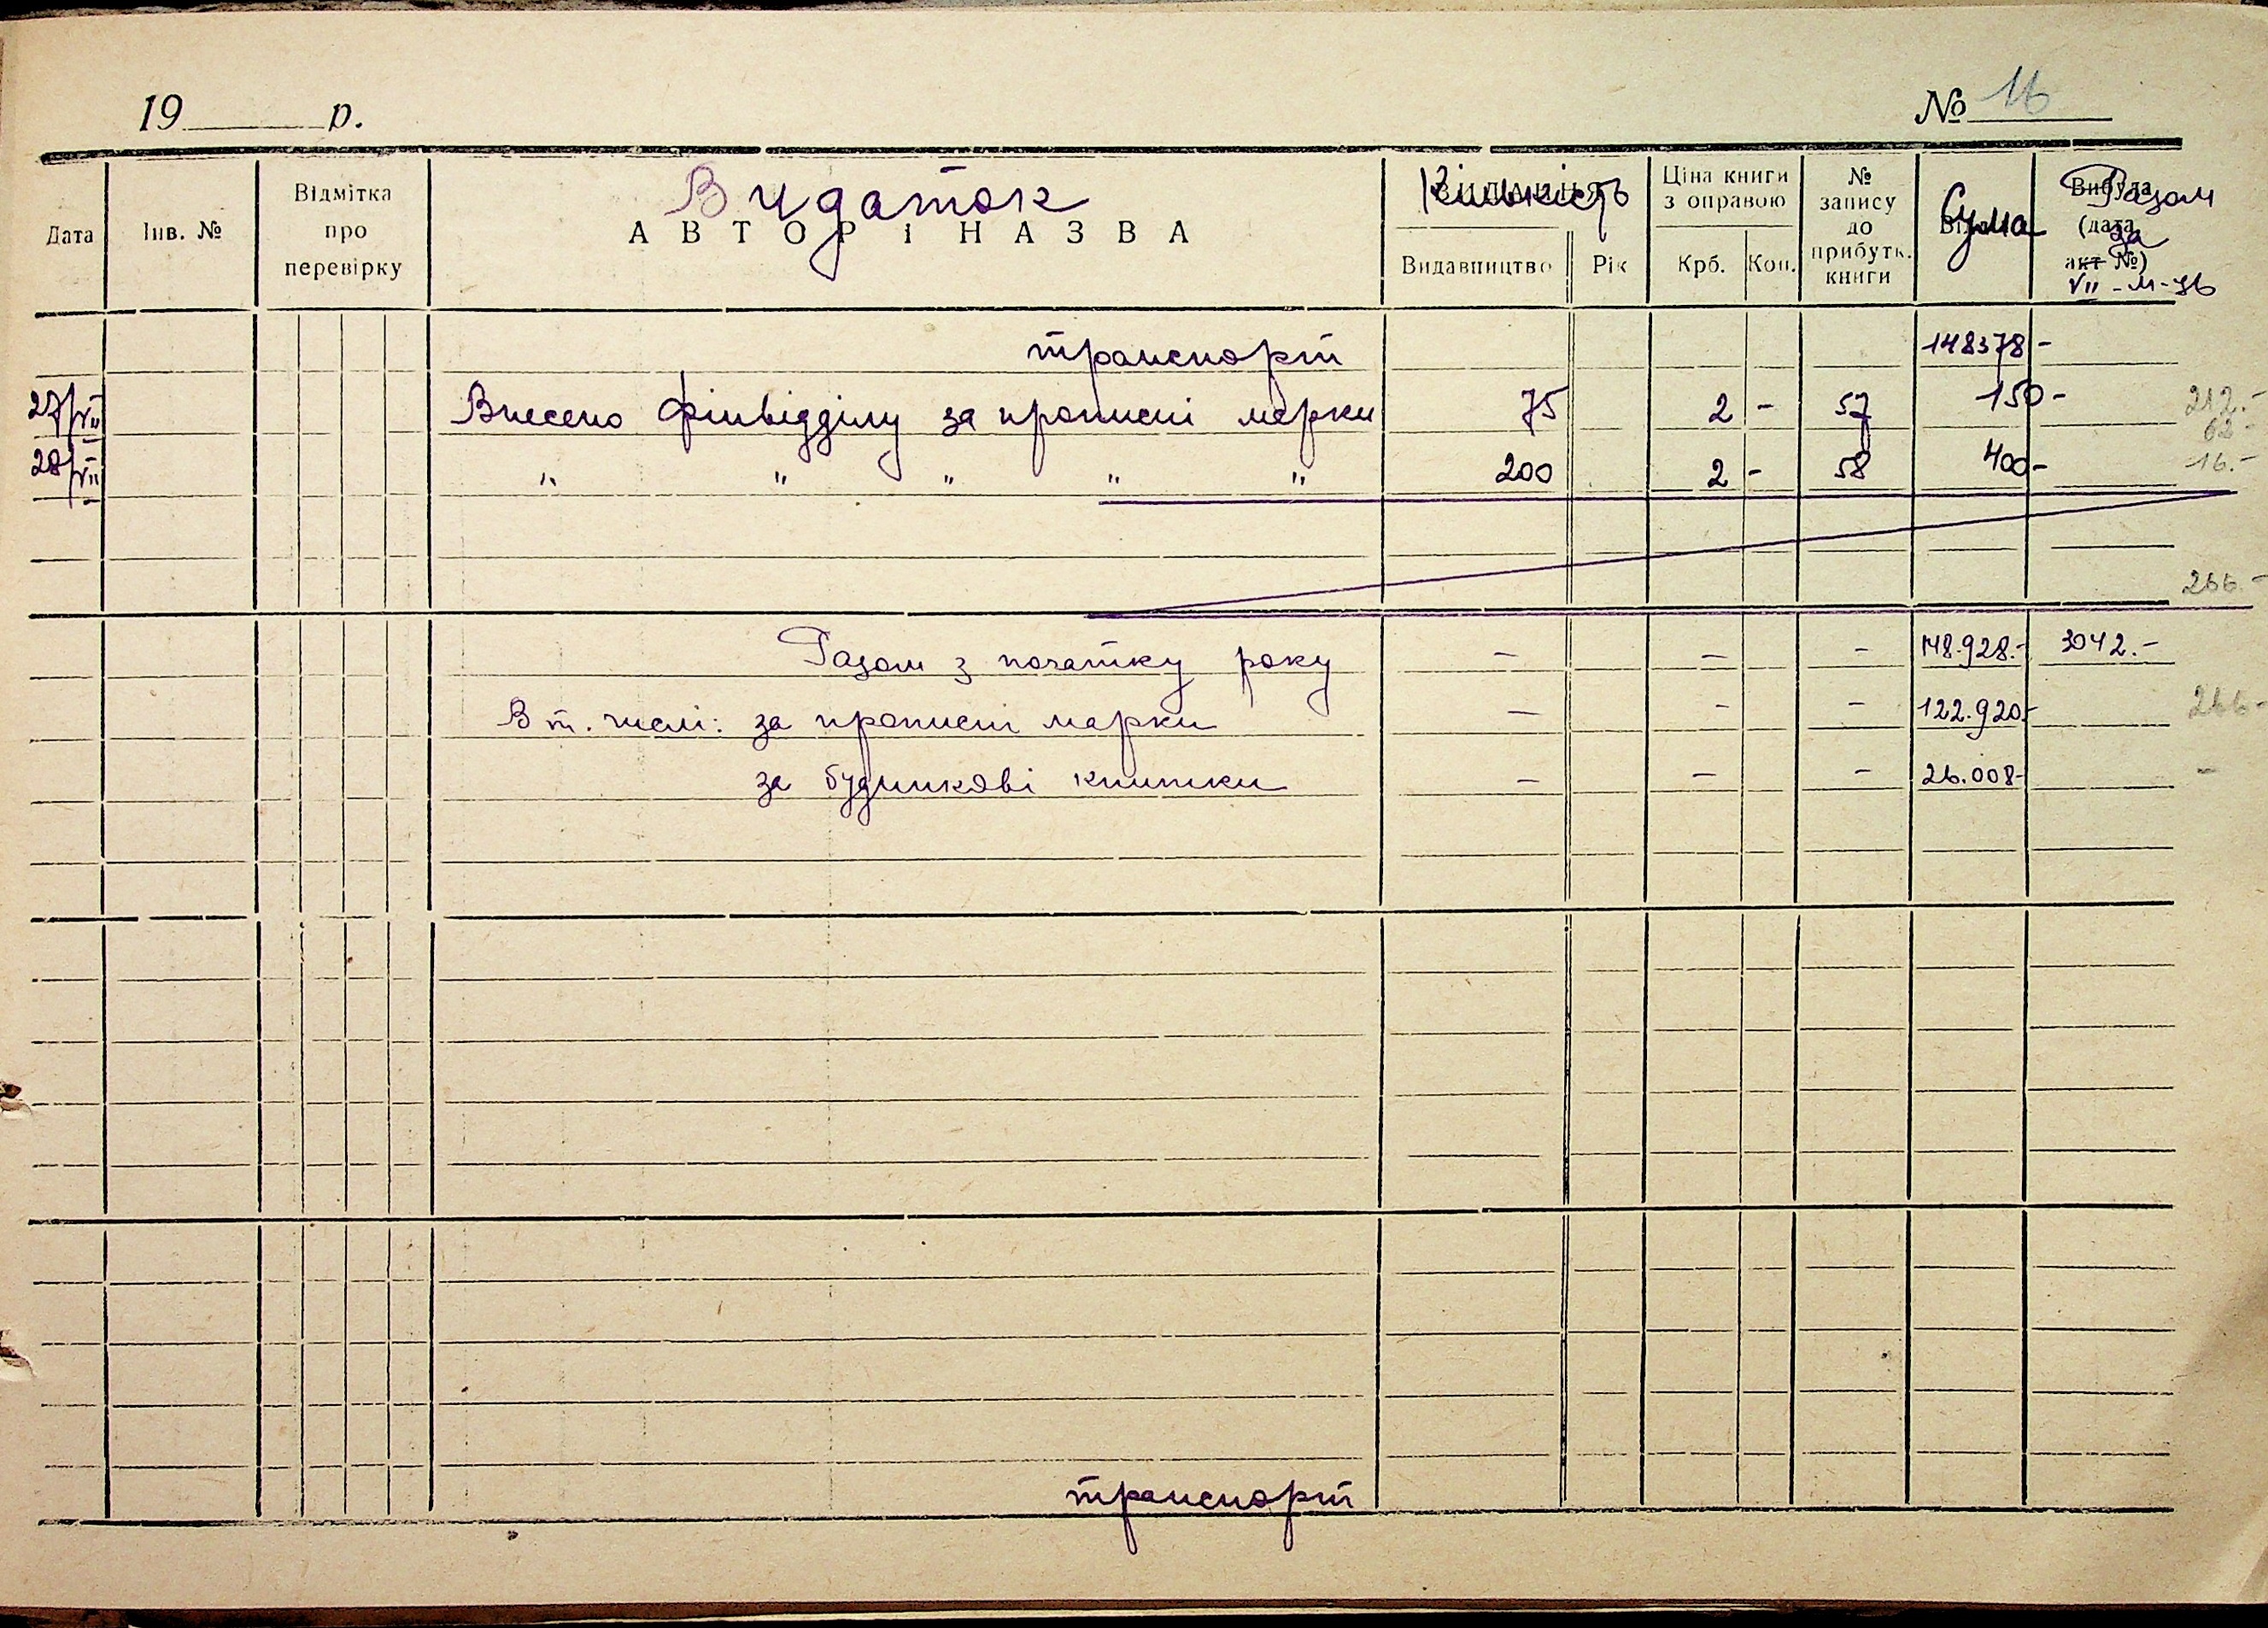 19 р. № 16
Дата Інв. № Відмітка про перевірку Видаток АВТОР і НАЗВА Кількість Видавництво Рік Ціна книги з оправою Крб. Коп. № запису до прибутк. книги Сума Вибула (дата, акт №) Разом за VII - м-ць
транспорт 148378 -
27/VII Внесено фінвідділу за прописні марки 75 2 - 57 150 - 212.-
62 -
28/VII " " " " " 200 2 - 58 400 - 16.-
266.-
Разом з початку року — — - 148.928.- 3042.-
В т. числі: за прописні марки — - - 122.920.- 266-
за будинкові книжки — — - 26.008- -
транспорт